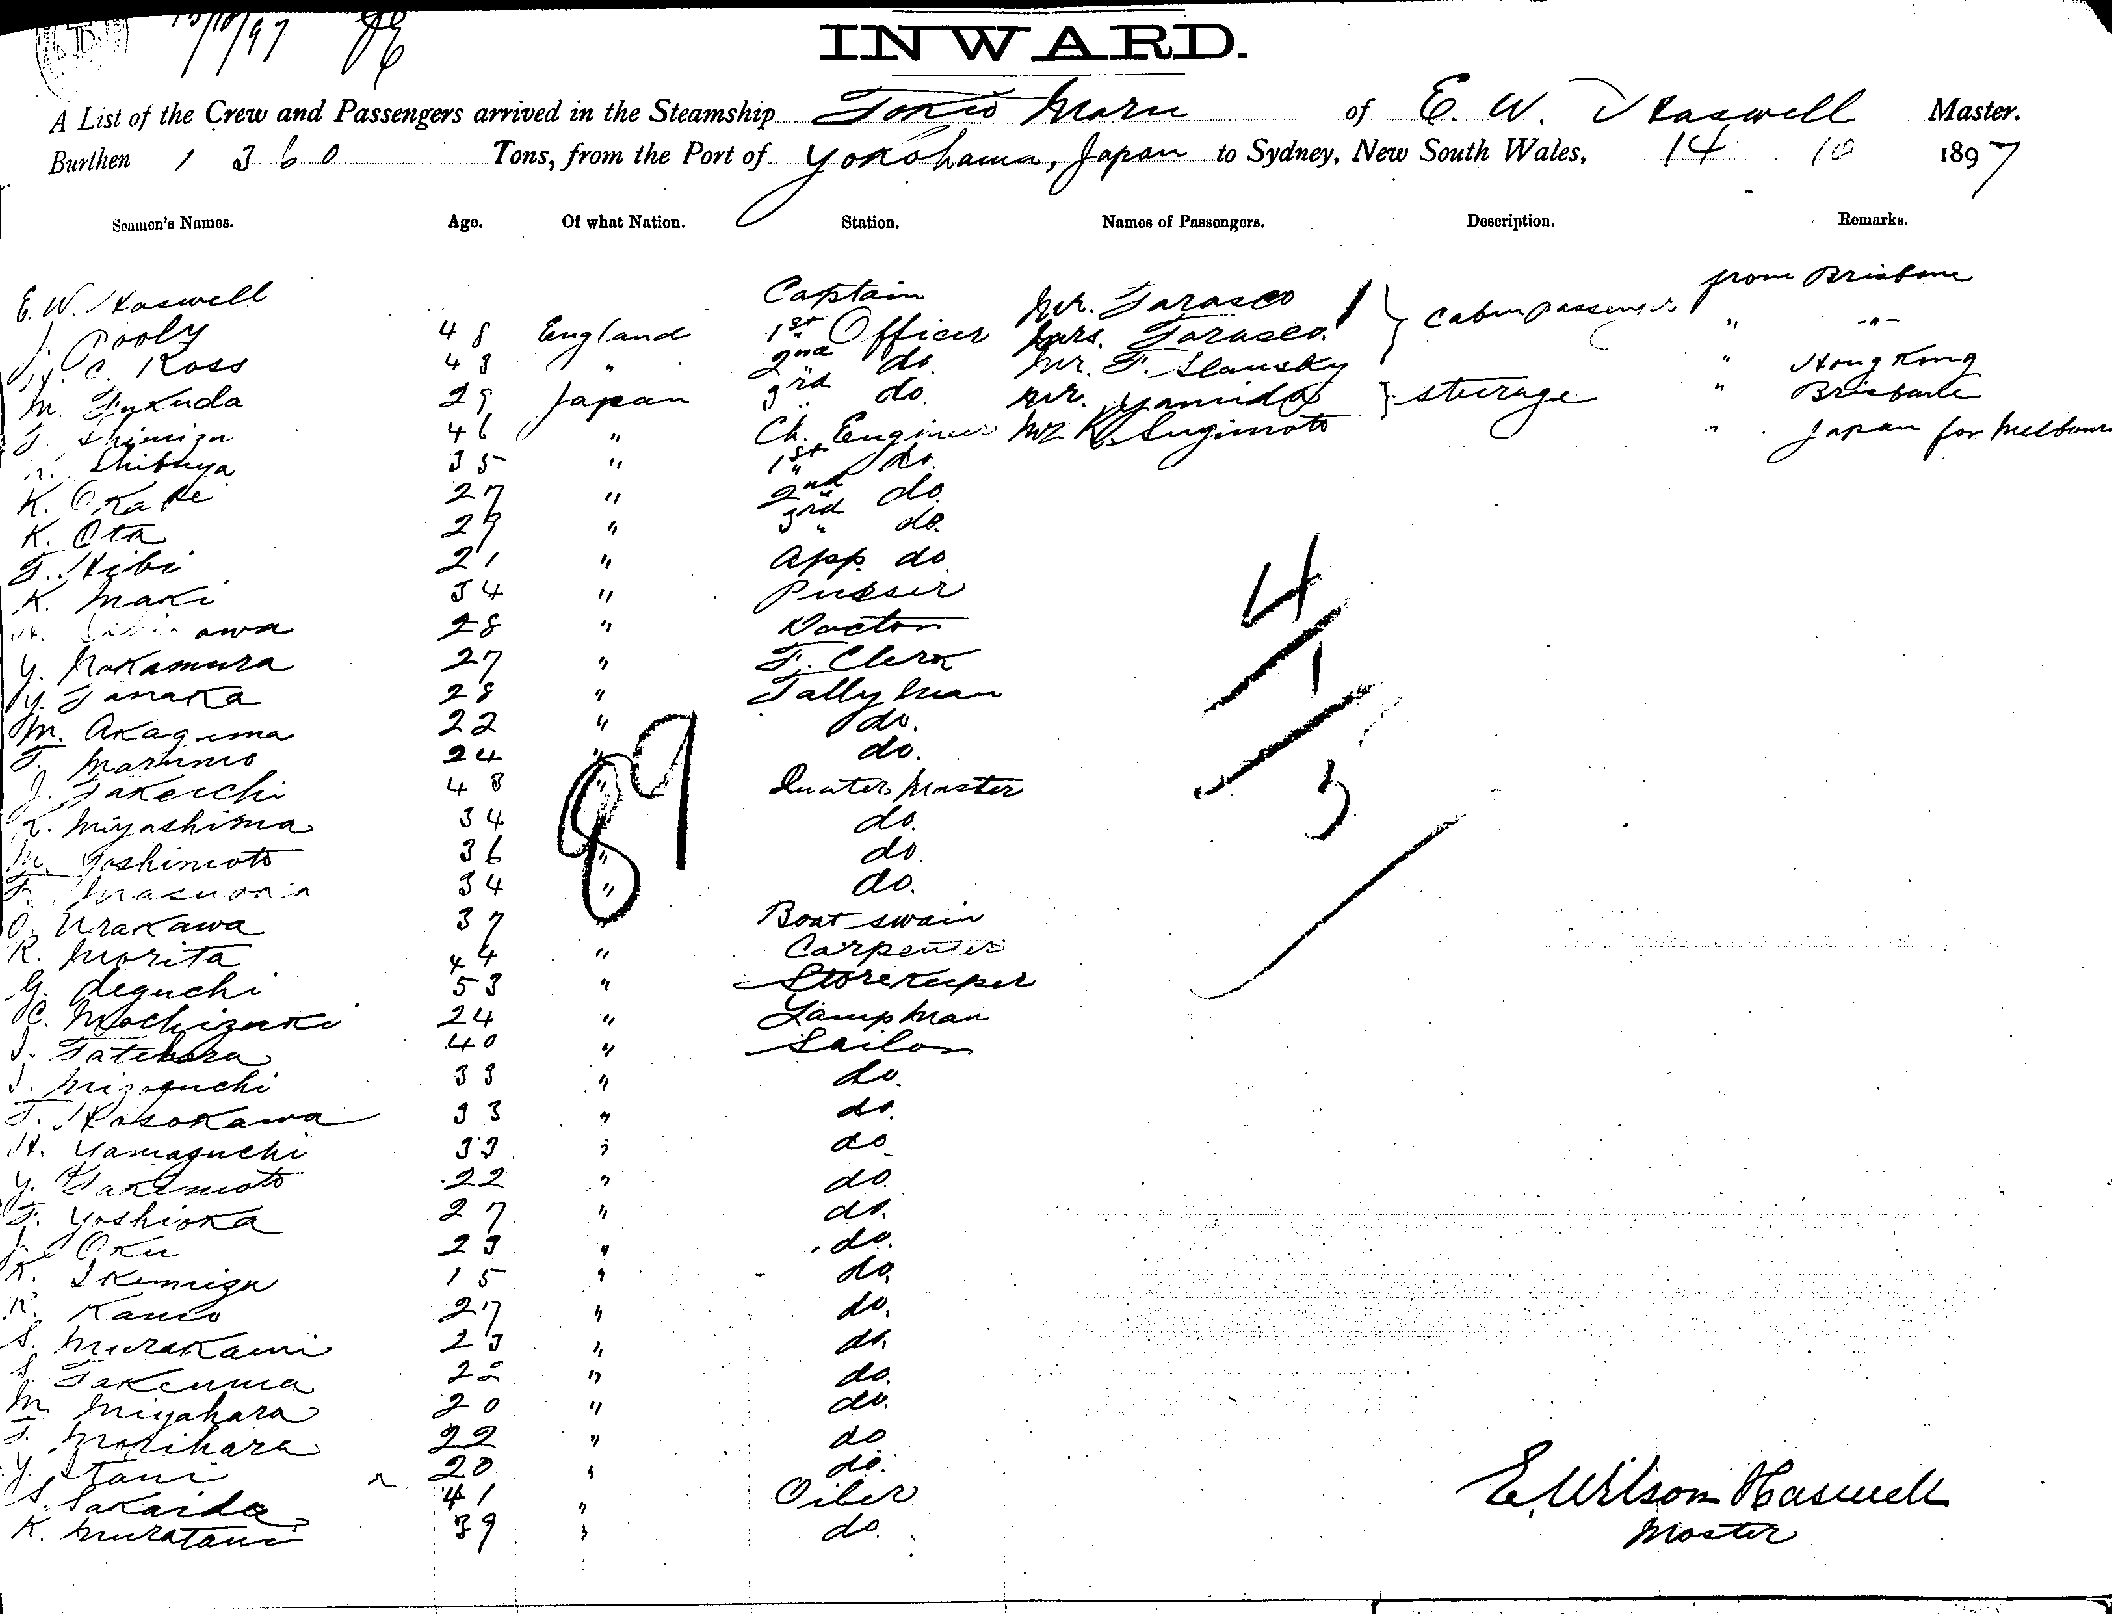 15/10/97
INWARD.
A List of the Crew and Passengers arrived in the Steamship Tokio Maru of E. W. Haswell Master.
Burthen 1360 Tons, from the Port of Yokohama, Japan to Sydney, New South Wales, 14 10 1897
Seamen's Names. Age. Of what Nation. Station. Names of Passengers. Description. Remarks.
E. W. Haswell Captain Mr. Tarasco Cabin passenger from Brisbane
J. Pooly 48 England 1st Officer Mrs. Tarasco " -"-
C. Ross 43 " 2nd do. Mr. F. Slansky " Hong Kong
M. Fukuda 29 Japan 3rd do. Mr. Yamida steerage " Brisbane
T. Shimizu 46 " Ch. Engineer Mr K. Sugimoto " Japan for Melbourne
Shibuya 35 " 1st " do.
K. Okabe 27 " 2nd " do.
K. Ota 29 " 3rd " do.
T. Hibi 21 " App. do.
K. Maki 34 " Purser
28 " Doctor
Y. Nakamura 27 " F. Clerk
Y. Tanaka 28 " Tally man
M. Akagima 22 " do.
T. Marumo 24 " do.
J. Takeichi 48 " Quater Master
K. Miyashima 34 " do.
M. Yoshimoto 36 " do.
F. Masuoka 34 " do.
O. Urakawa 37 " Boat swain
R. Morita 44 " Carpenter
G. Deguchi 53 " Storekeeper
C. Mochizuki 24 " Lamp man
I. Tatehara 40 " Sailor
I. Mizoguchi 33 " do.
T. Hosokawa 33 " do.
H. Yamaguchi 33 " do.
Y. Takemoto 22 " do.
T. Yoshioka 27 " do.
J. Oku 23 " do.
K. Ikemiza 15 " do.
K. Kano 27 " do.
S. Murakami 23 " do.
S. Takenma 22 " do.
M. Miyahara 20 " do.
T. Morihara 22 " do.
Y. Itani 20 " do.
S. Sakaida 41 " Oiler
K. Muratani 39 " do.
89
4
1
5
E. Wilson Haswell
Master